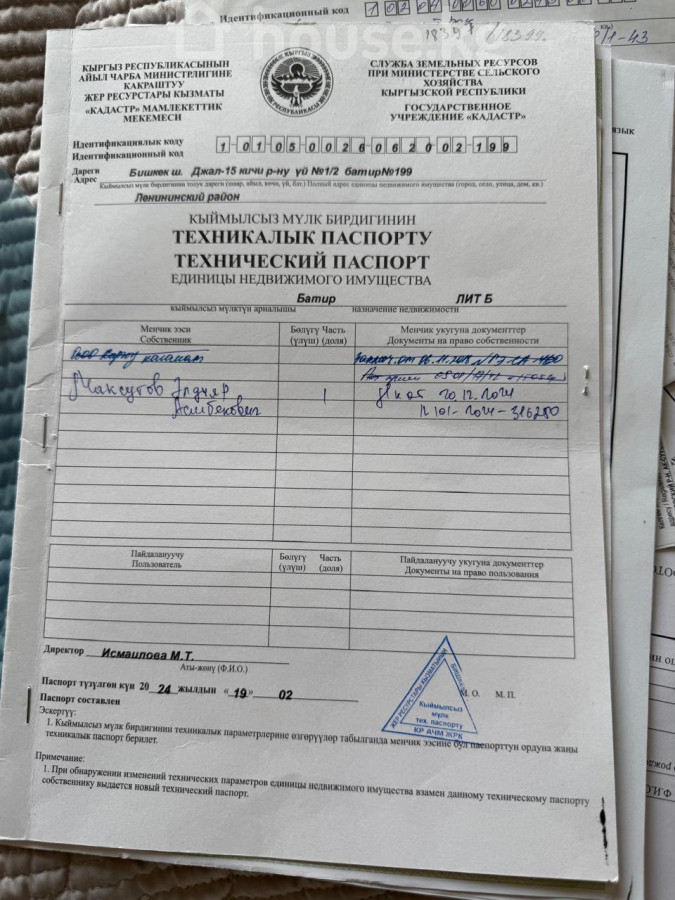 Идентификационный код
house
18397 /18399
P/1-43
КЫРГЫЗ РЕСПУБЛИКАСЫНЫН
АЙЫЛ ЧАРБА МИНИСТРЛИГИНЕ
КАРАШТУУ
ЖЕР РЕСУРСТАРЫ КЫЗМАТЫ
«КАДАСТР» МАМЛЕКЕТТИК
МЕКЕМЕСИ
СЛУЖБА ЗЕМЕЛЬНЫХ РЕСУРСОВ
ПРИ МИНИСТЕРСТВЕ СЕЛЬСКОГО
ХОЗЯЙСТВА
КЫРГЫЗСКОЙ РЕСПУБЛИКИ
ГОСУДАРСТВЕННОЕ
УЧРЕЖДЕНИЕ «КАДАСТР»
Идентификациялык коду
Идентификационный код
1-01-05-0026-0620-02-199
Дареги
Адрес
Бишкек ш. Джал-15 кичи р-ну үй №1/2 батир№199
Кыймылсыз мүлк бирдигинин толук дареги (шаар, айыл, көчө, үй, бат.) Полный адрес единицы недвижимого имущества (город, село, улица, дом, кв.)
Ленининский район
КЫЙМЫЛСЫЗ МҮЛК БИРДИГИНИН
ТЕХНИКАЛЫК ПАСПОРТУ
ТЕХНИЧЕСКИЙ ПАСПОРТ
ЕДИНИЦЫ НЕДВИЖИМОГО ИМУЩЕСТВА
Батир ЛИТ Б
кыймылсыз мүлктүн арналышы назначение недвижимости
Менчик ээси
Собственник
Бөлүгү Часть
(үлүш) (доля)
Менчик укугуна документтер
Документы на право собственности
Максутов Элдияр
Асылбекович
1
20.12.2024
12101-2024-316280
Пайдалануучу
Пользователь
Бөлүгү Часть
(үлүш) (доля)
Пайдалануучу укугуна документтер
Документы на право пользования
Директор Исмаилова М.Т.
Аты-жөнү (Ф.И.О.)
Паспорт түзүлгөн күн 20 24 жылдын «19» 02
Паспорт составлен
М. О. М. П.
ЖЕР РЕСУРСТАРЫ КЫЗМАТЫНЫН
Бишкек
Кыймылсыз
мүлк
тех. паспорту
КР АЧМ ЖРК
Эскертүү:
1. Кыймылсыз мүлк бирдигинин техникалык параметрлерине өзгөрүүлөр табылганда менчик ээсине бул паспорттун ордуна жаңы
техникалык паспорт берилет.
Примечание:
1. При обнаружении изменений технических параметров единицы недвижимого имущества взамен данному техническому паспорту
собственнику выдается новый технический паспорт.